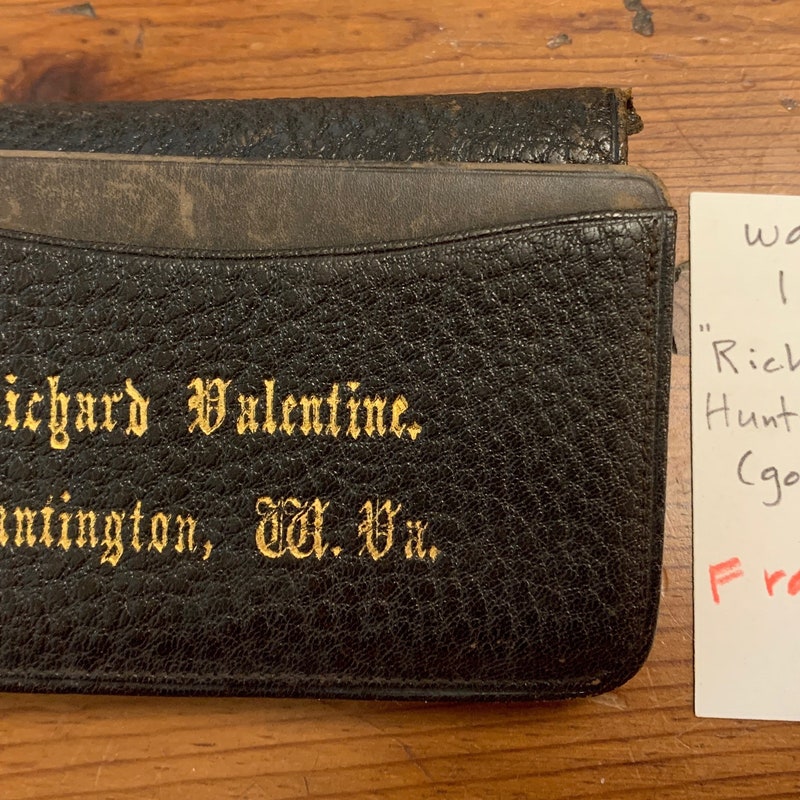 Richard Valentine.
untington, W. Va.
wa
1
"Rich
Hunt
(go
Fra